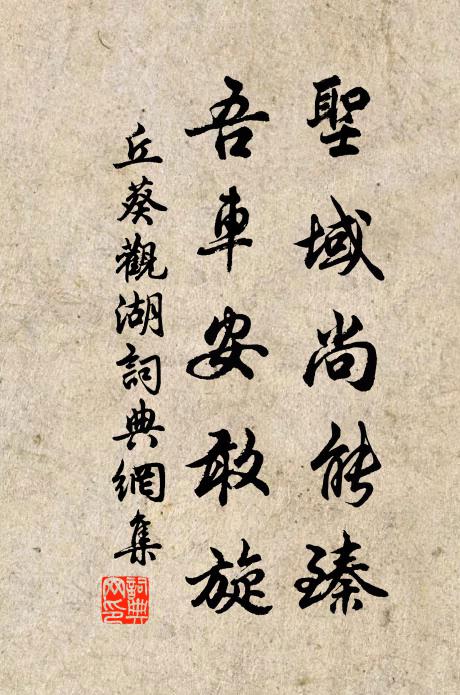 聖域尚能臻
吾車安敢旋
丘葵觀湖詞典網集
詞典網印